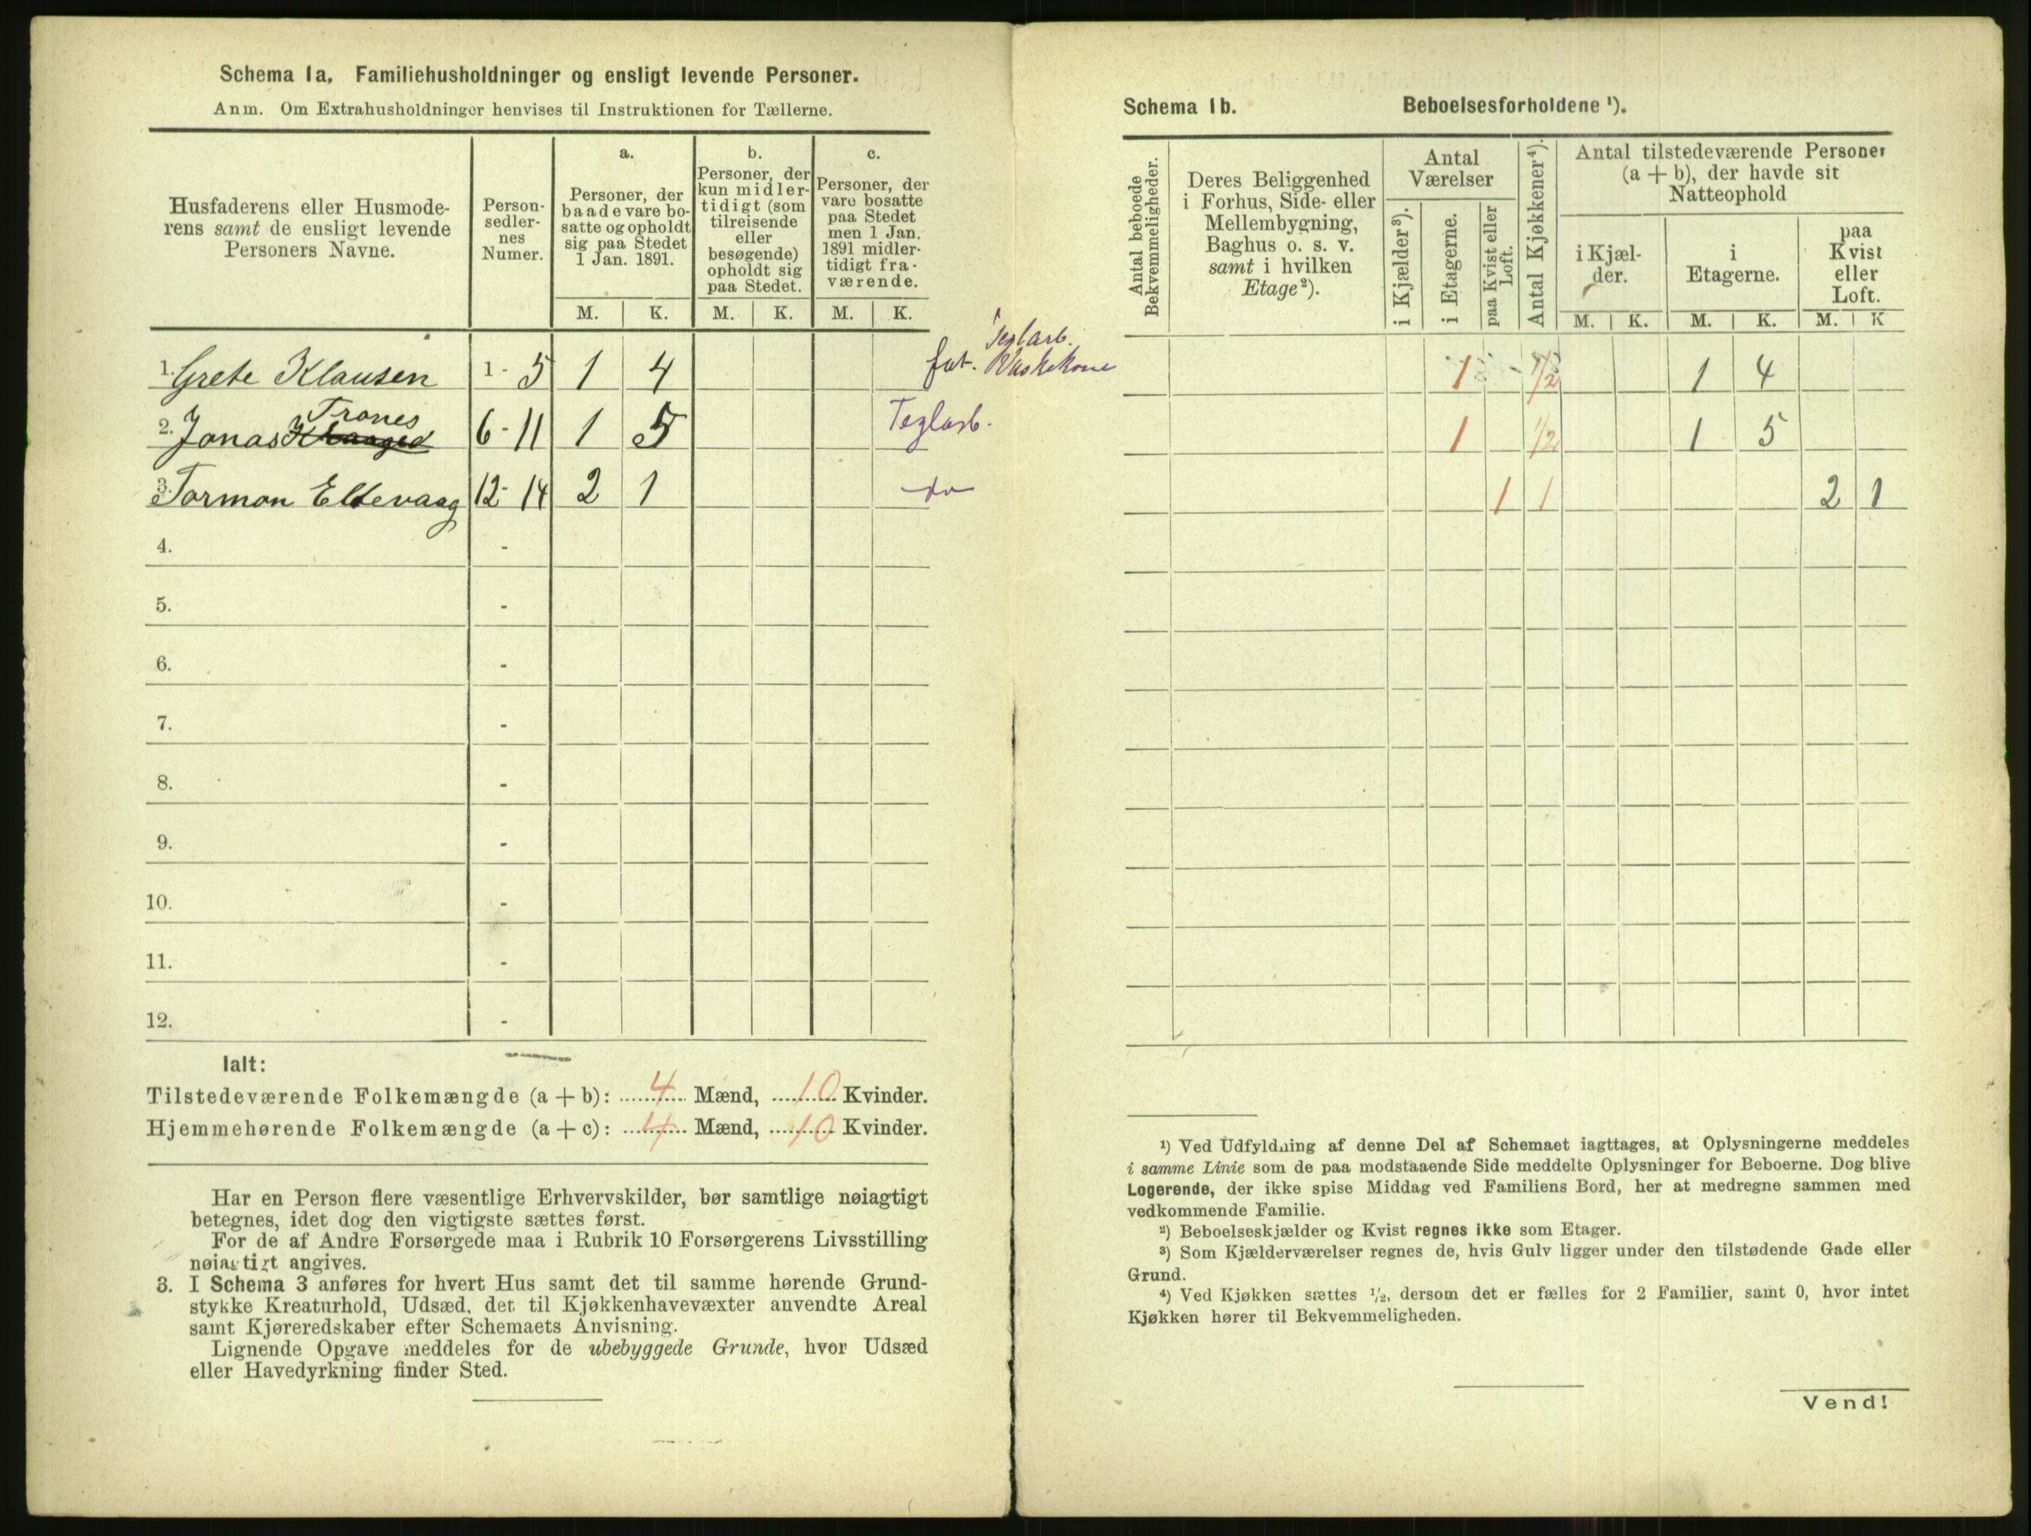 Schema 1a. Familiehusholdninger og ensligt levende Personer.
Anm. Om Extrahusholdninger henvises til Instruktionen for Tællerne.
Husfaderens eller Husmode-
rens samt de ensligt levende
Personers Navne.
Person-
sedler-
nes
Numer.
a.
Personer, der
baade vare bo-
satte og opholdt
sig paa Stedet
1 Jan. 1891.
b.
Personer, der
kun midler-
tidigt (som
tilreisende
eller
besøgende)
opholdt sig
paa Stedet.
c.
Personer, der
vare bosatte
paa Stedet
men 1 Jan.
1891 midler-
tidigt fra-
værende.
M. K. M. K. M. K.
1. Grete Klausen 1 - 5 1 4 fat. Teglarb. Vaskekone
2. Jonas Trones 6 - 11 1 5 Teglarb.
3. Tormon Eltevaag 12 - 14 2 1 do
4. -
5. -
6. -
7. -
8. -
9. -
10. -
11. -
12. -
Ialt:
Tilstedeværende Folkemængde (a + b): 4 Mænd, 10 Kvinder.
Hjemmehørende Folkemængde (a + c): 4 Mænd, 10 Kvinder.
Har en Person flere væsentlige Erhvervskilder, bør samtlige nøiagtigt
betegnes, idet dog den vigtigste sættes først.
For de af Andre Forsørgede maa i Rubrik 10 Forsørgerens Livsstilling
nøiagtigt angives.
3. I Schema 3 anføres for hvert Hus samt det til samme hørende Grund-
stykke Kreaturhold, Udsæd, det til Kjøkkenhavevæxter anvendte Areal
samt Kjøreredskaber efter Schemaets Anvisning.
Lignende Opgave meddeles for de ubebyggede Grunde, hvor Udsæd
eller Havedyrkning finder Sted.
Schema 1b. Beboelsesforholdene ¹).
Antal beboede
Bekvemmeligheder.
Deres Beliggenhed
i Forhus, Side- eller
Mellembygning,
Baghus o. s. v.
samt i hvilken
Etage²).
Antal
Værelser
i Kjælder³).
i Etagerne.
paa Kvist eller
Loft.
Antal Kjøkkener⁴).
Antal tilstedeværende Personer
(a + b), der havde sit
Natteophold
i Kjæl-
der.
i
Etagerne.
paa
Kvist
eller
Loft.
M. K. M. K. M. K
1 1/2 1 4
1 1/2 1 5
1 1 2 1
¹) Ved Udfyldning af denne Del af Schemaet iagttages, at Oplysningerne meddeles
i samme Linie som de paa modstaaende Side meddelte Oplysninger for Beboerne. Dog blive
Logerende, der ikke spise Middag ved Familiens Bord, her at medregne sammen med
vedkommende Familie.
²) Beboelseskjælder og Kvist regnes ikke som Etager.
³) Som Kjælderværelser regnes de, hvis Gulv ligger under den tilstødende Gade eller
Grund.
⁴) Ved Kjøkken sættes ¹/₂, dersom det er fælles for 2 Familier, samt 0, hvor intet
Kjøkken hører til Bekvemmeligheden.
Vend!